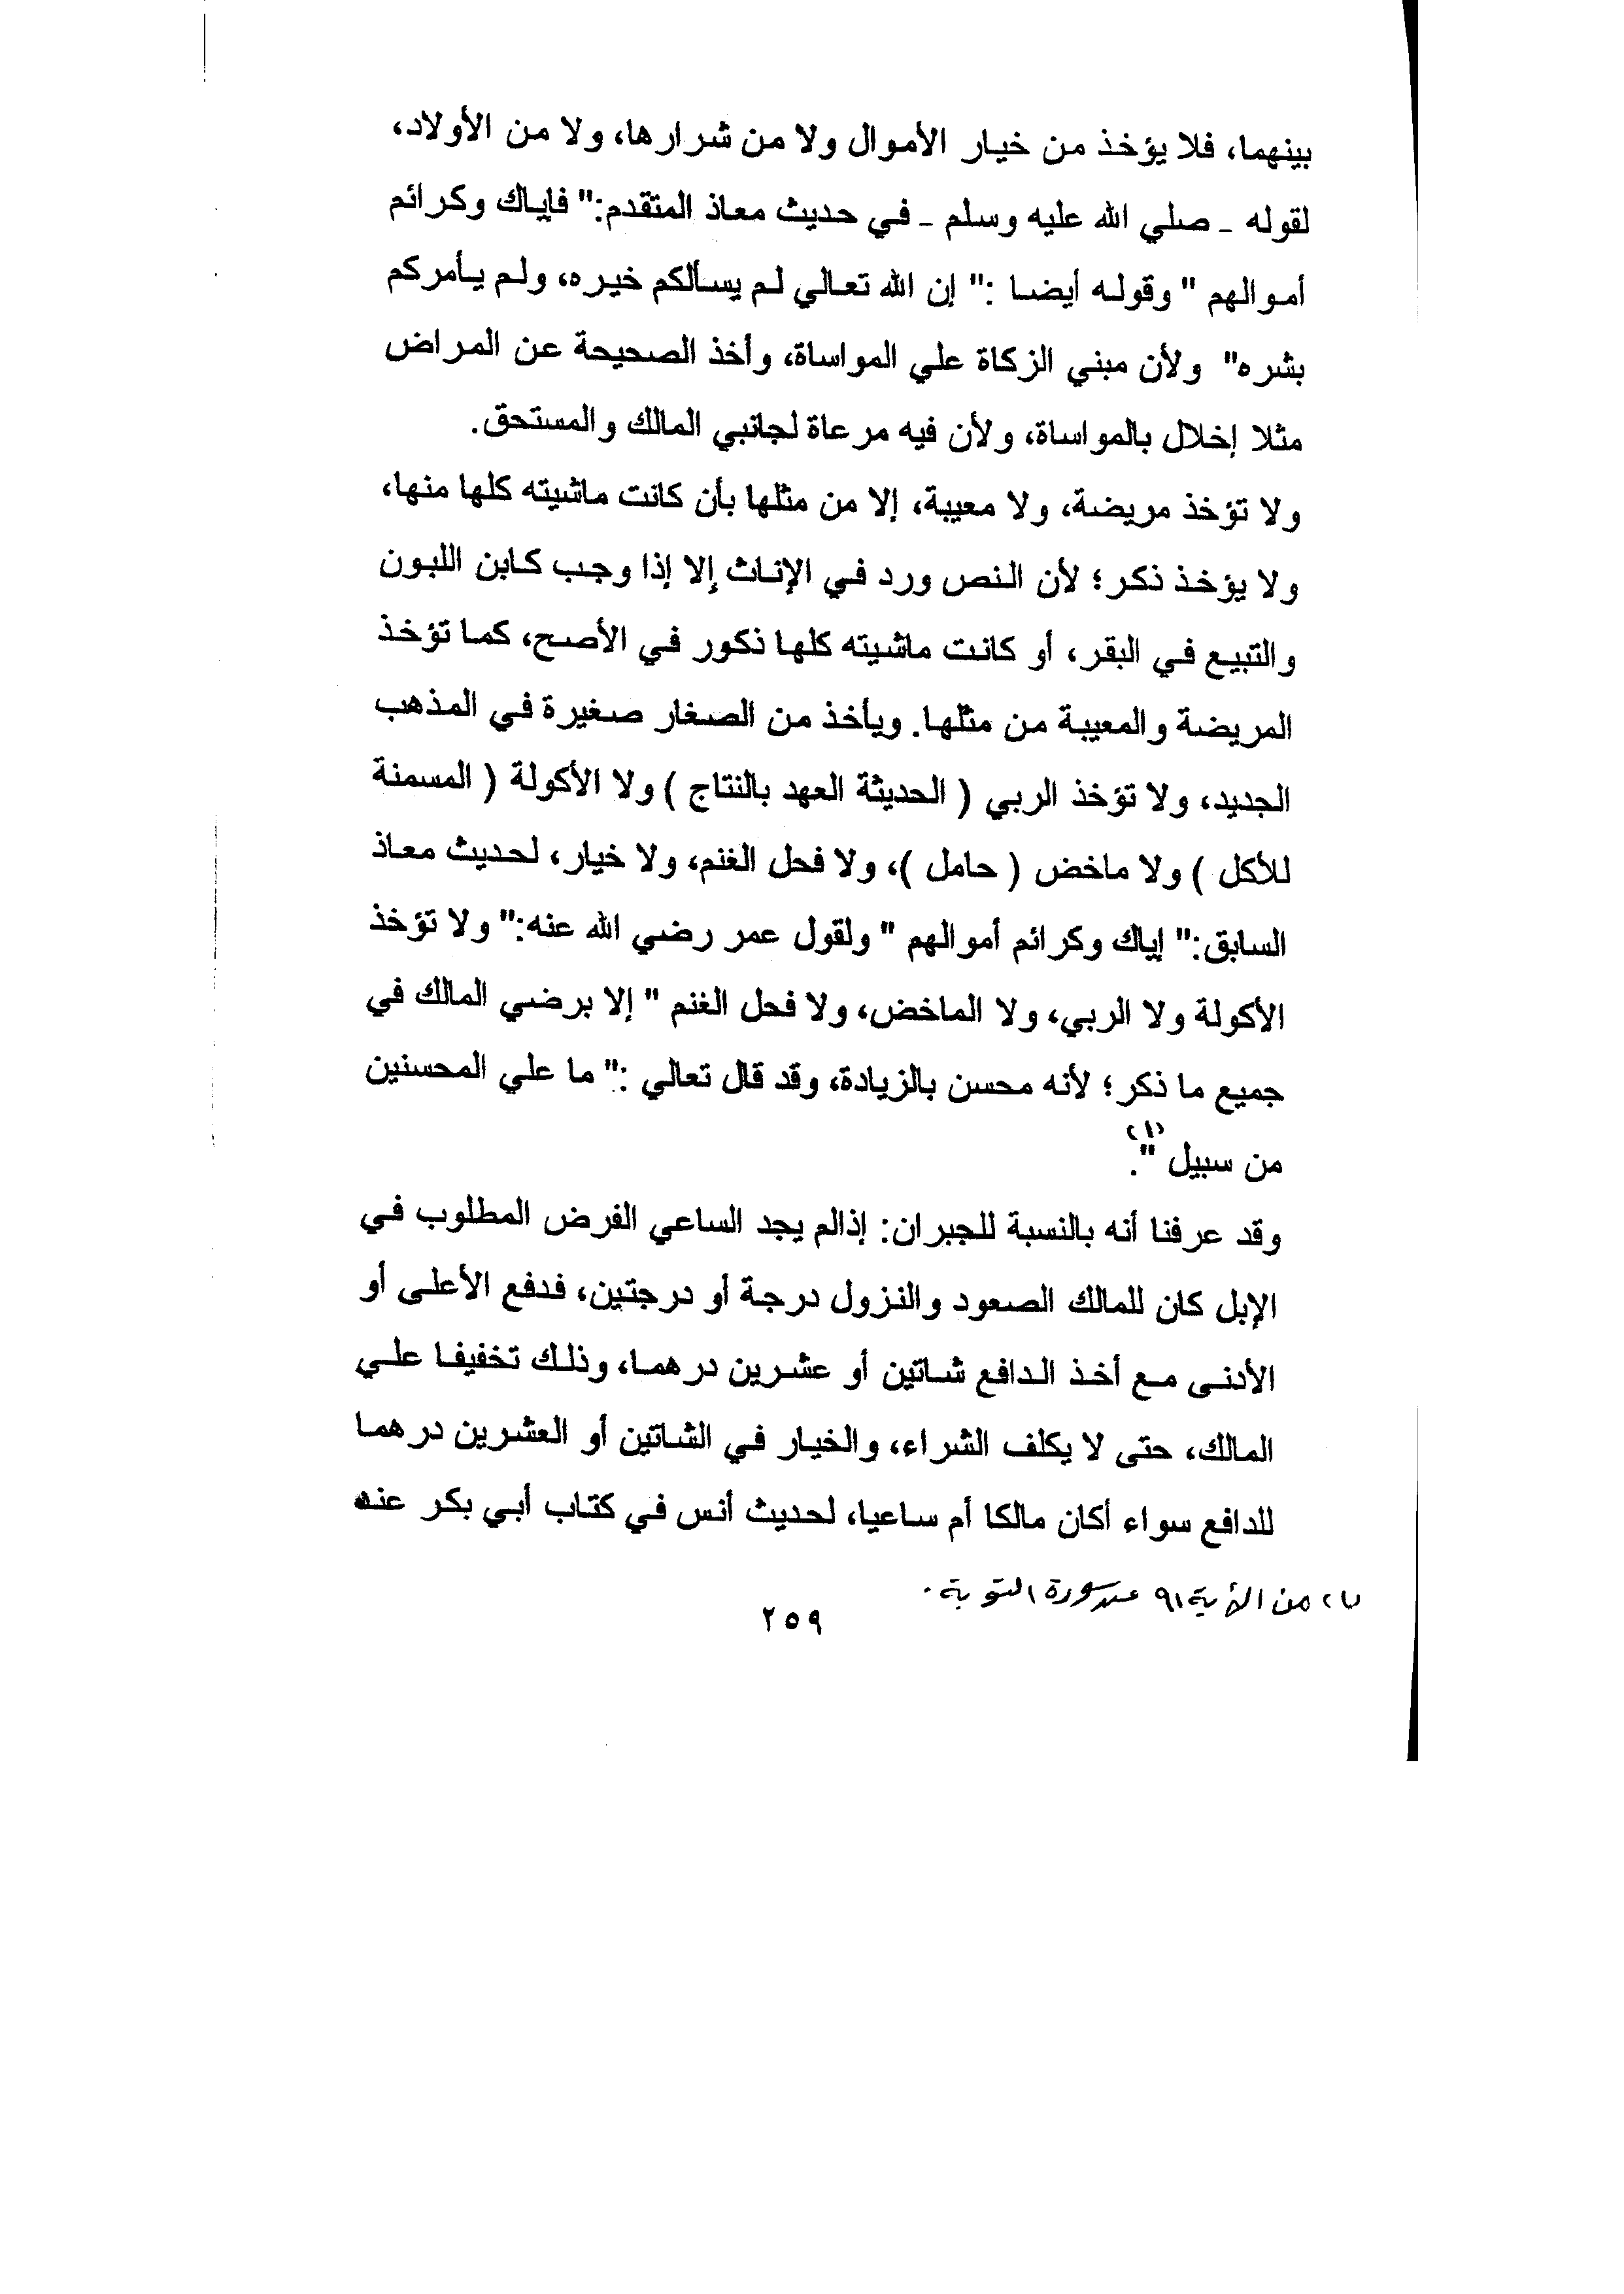 بينهما، فلا يؤخذ من خيار الأموال ولا من شرارها، ولا من الأولاد،
لقوله - صلي الله عليه وسلم - في حديث معاذ المتقدم:" فإياك وكرائم
أموالهم " وقوله أيضا :" إن الله تعالي لم يسألكم خيره، ولم يأمركم
بشره" ولأن مبني الزكاة علي المواساة، وأخذ الصحيحة عن المراض
مثلا إخلال بالمواساة، ولأن فيه مرعاة لجانبي المالك والمستحق.
ولا تؤخذ مريضة، ولا معيبة، إلا من مثلها بأن كانت ماشيته كلها منها،
ولا يؤخذ ذكر؛ لأن النص ورد في الإناث إلا إذا وجب كابن اللبون
والتبيع في البقر، أو كانت ماشيته كلها ذكور في الأصح، كما تؤخذ
المريضة والمعيبة من مثلها. ويأخذ من الصغار صغيرة في المذهب
الجديد، ولا تؤخذ الربي ( الحديثة العهد بالنتاج ) ولا الأكولة ( المسمنة
للأكل ) ولا ماخض ( حامل )، ولا فحل الغنم، ولا خيار، لحديث معاذ
السابق:" إياك وكرائم أموالهم " ولقول عمر رضي الله عنه:" ولا تؤخذ
الأكولة ولا الربي، ولا الماخض، ولا فحل الغنم " إلا برضي المالك في
جميع ما ذكر؛ لأنه محسن بالزيادة، وقد قال تعالي :" ما علي المحسنين
من سبيل ".(١)
وقد عرفنا أنه بالنسبة للجبران: إذالم يجد الساعي الفرض المطلوب في
الإبل كان للمالك الصعود والنزول درجة أو درجتين، فدفع الأعلى أو
الأدنى مع أخذ الدافع شاتين أو عشرين درهما، وذلك تخفيفا علي
المالك، حتى لا يكلف الشراء، والخيار في الشاتين أو العشرين درهما
للدافع سواء أكان مالكا أم ساعيا، لحديث أنس في كتاب أبي بكر عنه
(١) من الأية ٩١ من سورة التوبة.
٢٥٩